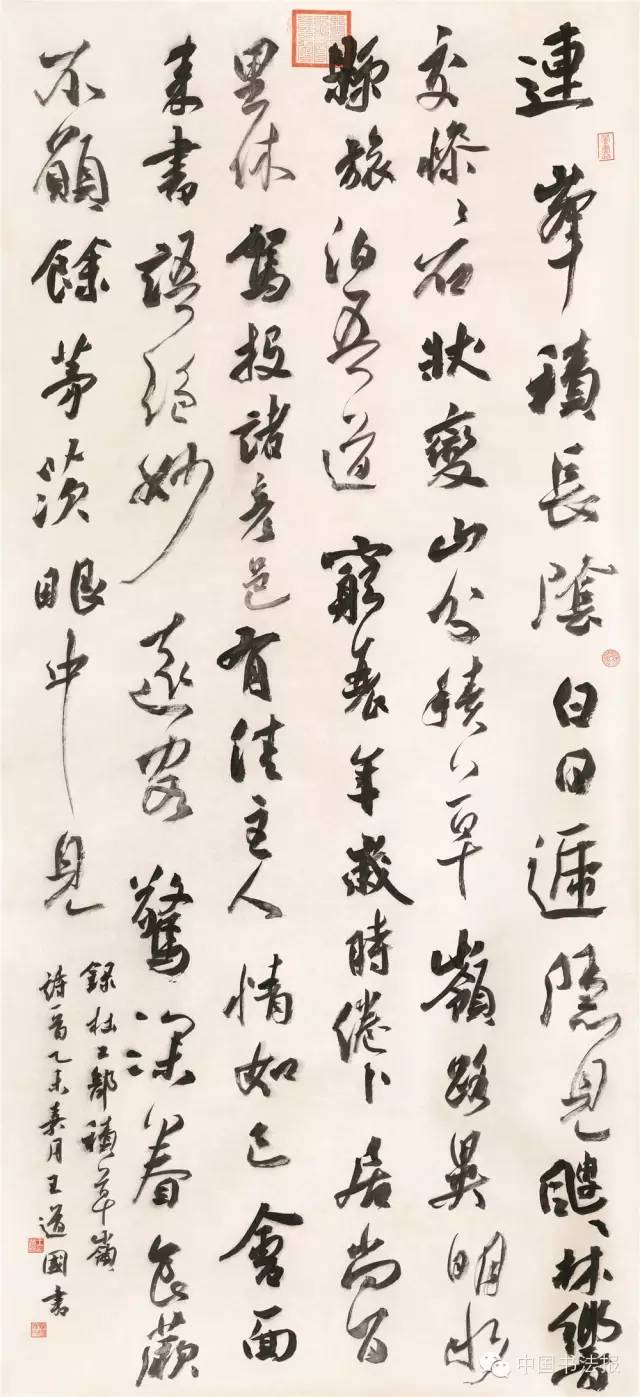 連峯積長陰白日遞隱見颼〻林響
交慘〻石狀變山分積草嶺路異明水
縣旅泊吾道窮衰年歲時倦卜居尚百
里休駕投諸彥邑有佳主人情如已會面
來書語絕妙遠客驚深眷食蕨
不願餘茅茨眼中見
錄杜工部積草嶺
詩一首乙未月王道國書
中国书法报